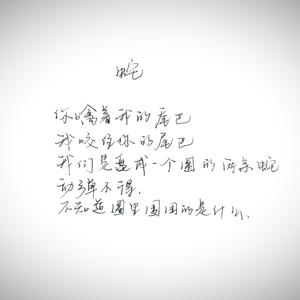 蛇
你噙着我的尾巴
我咬住你的尾巴
我们是盘成一个圆的两条蛇
动弹不得.
不知道圈里围困的是什么.